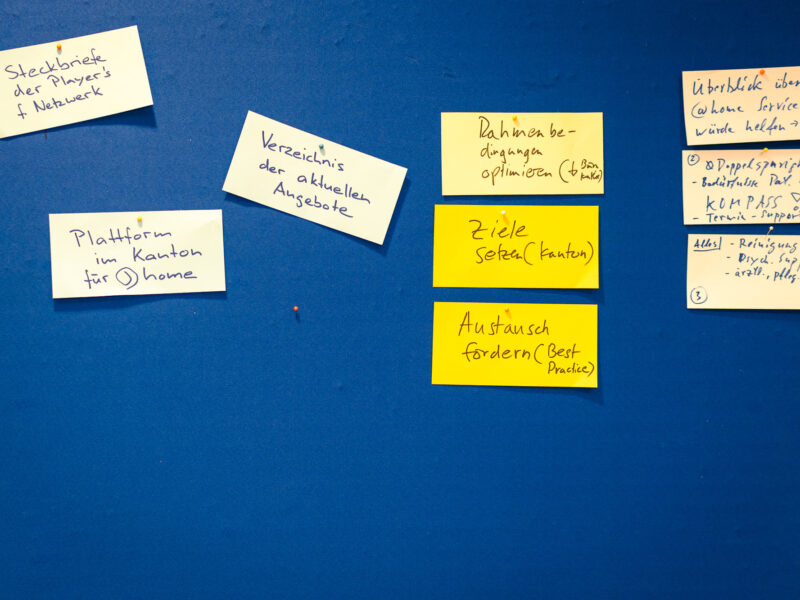 Steckbriefe
der Player's
f. Netzwerk
Verzeichnis
der aktuellen
Angebote
Plattform
im Kanton
für @home
Rahmenbe-
dingungen
optimieren (↓
Ziele
setzen (Kanton)
Austausch
fördern (Best
Practice)
Überblick über
@home Service
würde helfen →
②
- Bedürfnisse Pat.
KOMPASS
- Termin - Support
Alles! - Reinigung
- Psych. Supp
- ärztl., Pfleg.
③